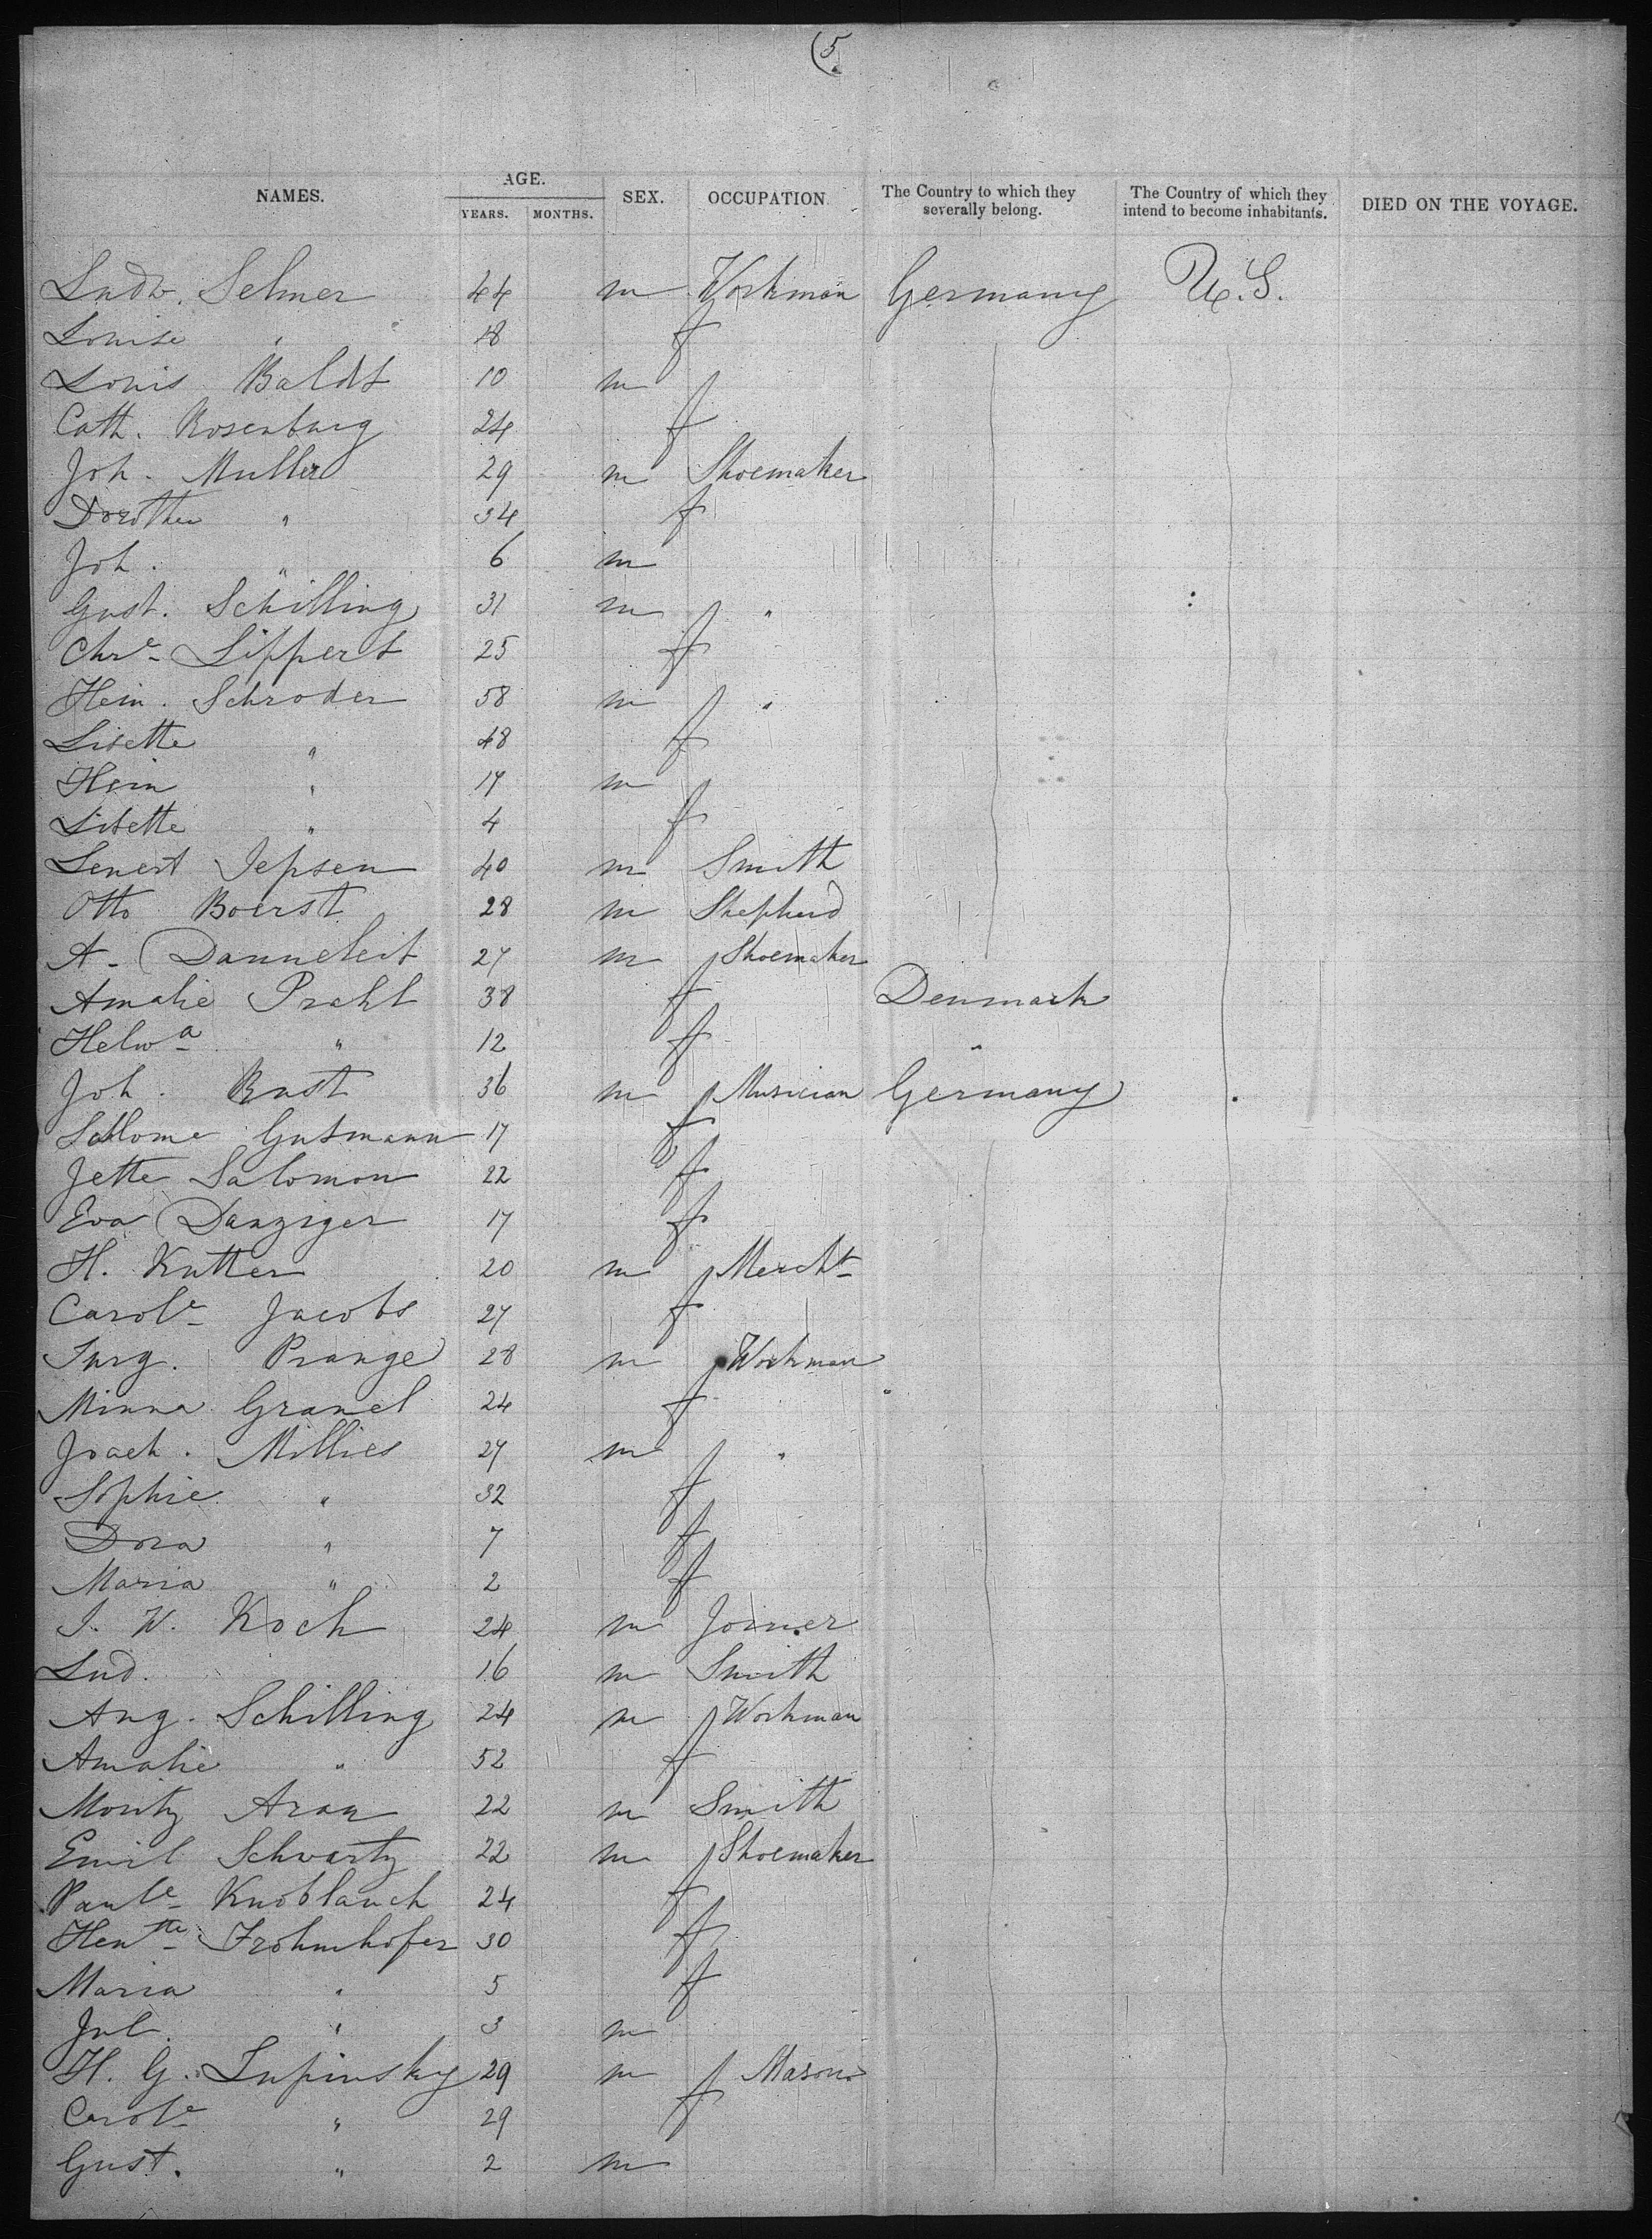 (5
NAMES. AGE. SEX. OCCUPATION The Country to which they severally belong. The Country of which they intend to become inhabitants. DIED ON THE VOYAGE.
YEARS. MONTHS.
Ludw. Selmer 44 m Workman Germany U.S.
Louise " 18 f
Louis Baldt 10 m
Cath. Rosenburg 24 f
Joh. Muller 29 m Shoemaker
Dorothea " 34 f
Joh. " 6 m
Gust. Schilling 31 m "
Chre Lippert 25 f
Hein. Schroder 58 m "
Lisette " 48 f
Hein " 17 m
Lisette " 4 f
Lenert Jepsen 40 m Smith
Otto Boerst 28 m Shepherd
A. Danneleit 27 m Shoemaker
Amalie Prahl 38 f Denmark
Helwa " 12 f "
Joh. Rust 36 m Musician Germany
Sallome Gutmann 17 f
Jette Salomon 22 f
Eva Danziger 17 f
H. Kutter 20 m Mercht
Carole Jacobs 27 f
Jurg. Prange 28 m Workman
Minna Gramel 24 f "
Joach. Millies 27 m "
Sophie " 32 f
Dora " 7 f
Maria " 2 f
J. W. Koch 24 m Joiner
Lud. 16 m Smith
Aug. Schilling 24 m Workman
Amalie " 52 f
Moritz 22 m Smith
Emil Schwartz 22 m Shoemaker
Paule Knoblauch 24 f
Hentte Frohmhofer 30 f
Maria " 5 f
Jul. " 3 m
H. G. Lupinsky 29 m Mason
Carole " 29 f
Gust. " 2 m